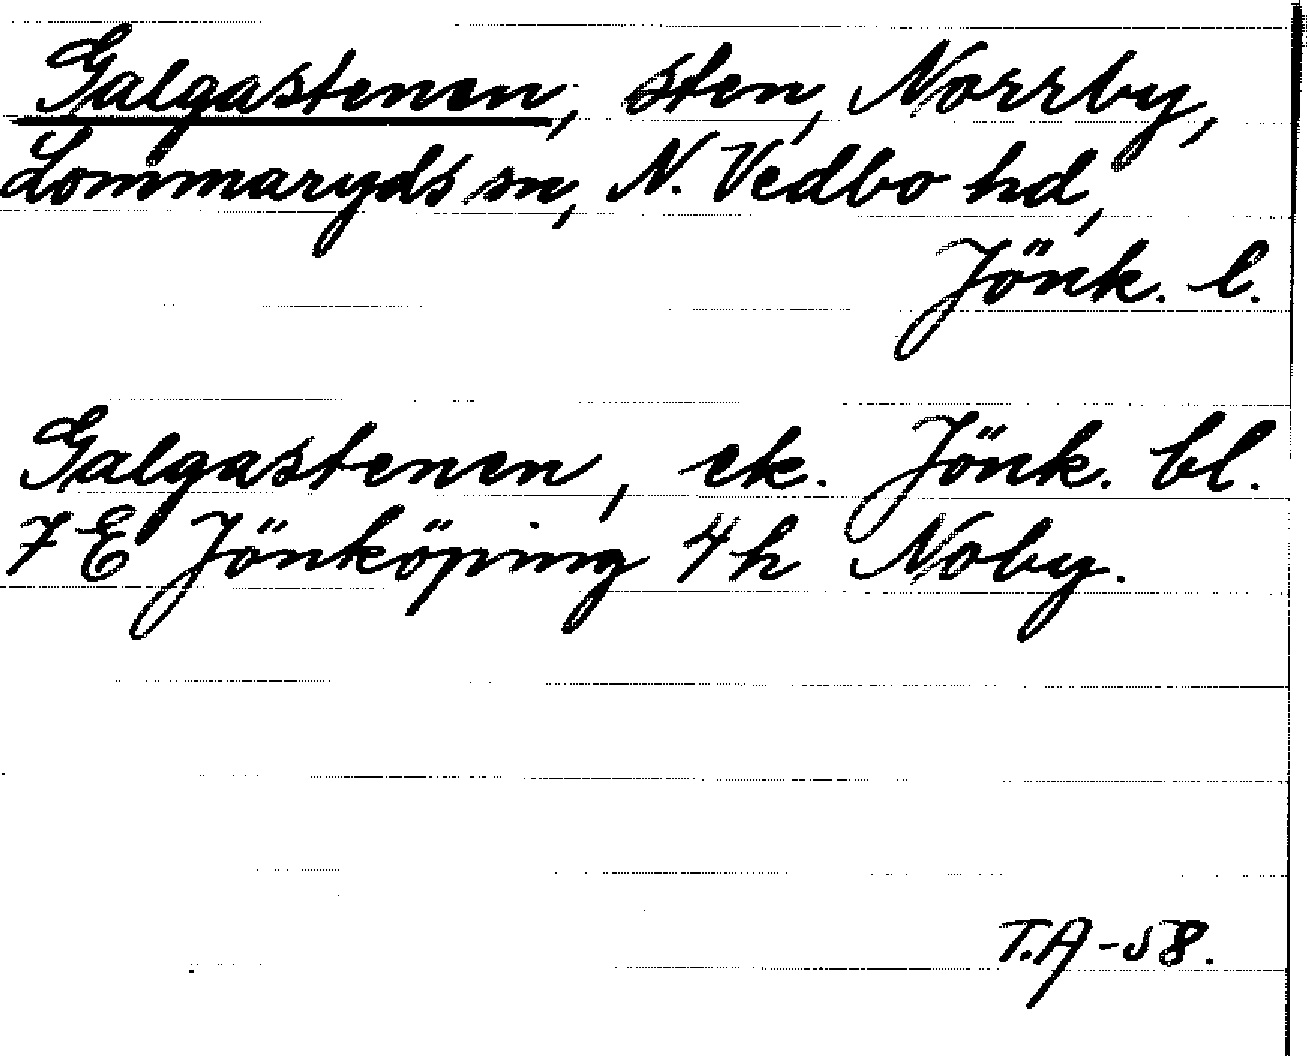 Galgastenen, sten, Norrby,
Lommaryds sn, N. Vedbo hd,
Jönk. l.
Galgastenen, ek. Jönk. bl.
7E Jönköping 4h Noby.
T.A-58.